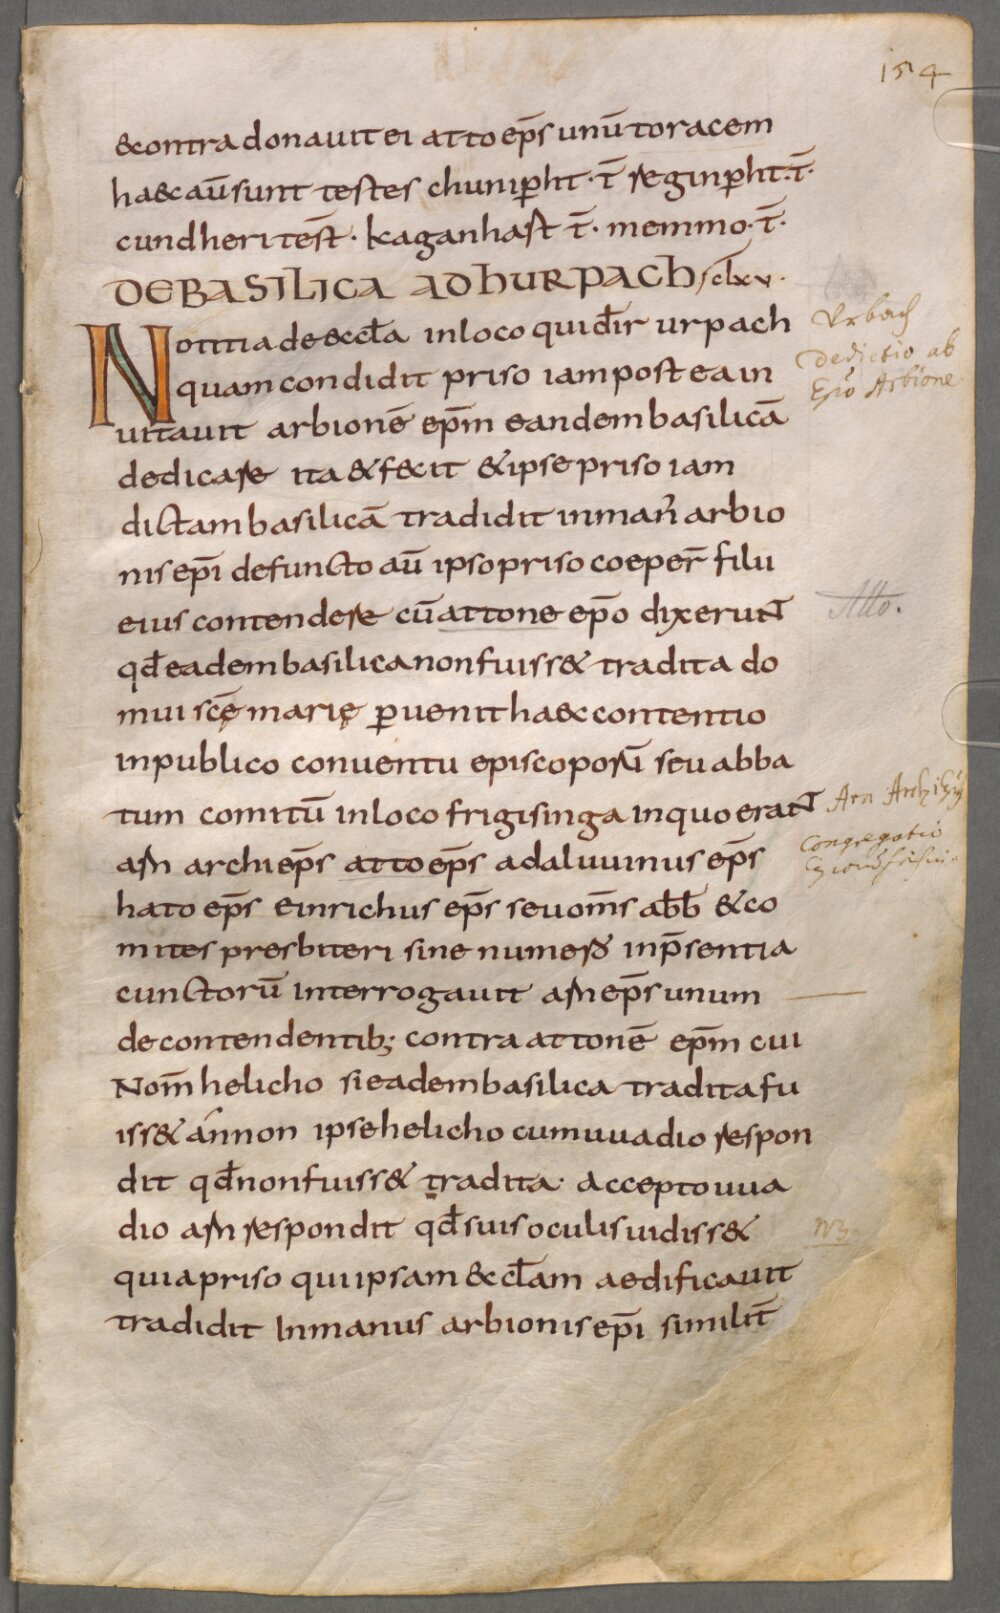 154
&contra donauit ei atto ep̄s unū toracem
haec aū sunt testes chunip̄ht · t̄ reginp̄ht · t̄ ·
cundheri test̄ · kaganhast t̄ · memmo · t̄ ·
DE BASILICA AD HURPACH clxv ·
Notitia de eccl̄a in loco qui dr̄ urpach
quam condidit priso iam postea in
uitauit arbionē ep̄m eandem basilicā
dedicare ita & fecit & ipse priso iam
dictam basilicā tradidit in man̄ arbio
nis ep̄i defuncto aū ipso priso coeper̄ filii
eius contendere cū attone ep̄o dixerunt
qđ eadem basilica non fuiss& tradita do
mui scę̄ marię peruenit haec contentio
in publico conuentu episcoporū seu abba
tum comitū in loco frigisinga in quo erant
arn archiep̄s atto ep̄s adaluuinus ep̄s
hato ep̄s einrichus ep̄s seu om̄s abb̄ & co
mites presbiteri sine numero in p̄sentia
cunctorū interrogauit arn ep̄s unum
de contendentib; contra attonē ep̄m cui
Nom̄ helicho si eadem basilica tradita fu
iss& an non ipse helicho cum uuadio respon
dit qđ non fuiss& tradita · accepto uua
dio arn respondit qđ suis oculis uidiss&
quia priso qui ipsam eccl̄am aedificauit
tradidit In manus arbionis ep̄i similit̄
Urbach
Dedictio ab
Ep̄o Arbione
Atto.
Arn Archiep̄us
Congregatio
NB